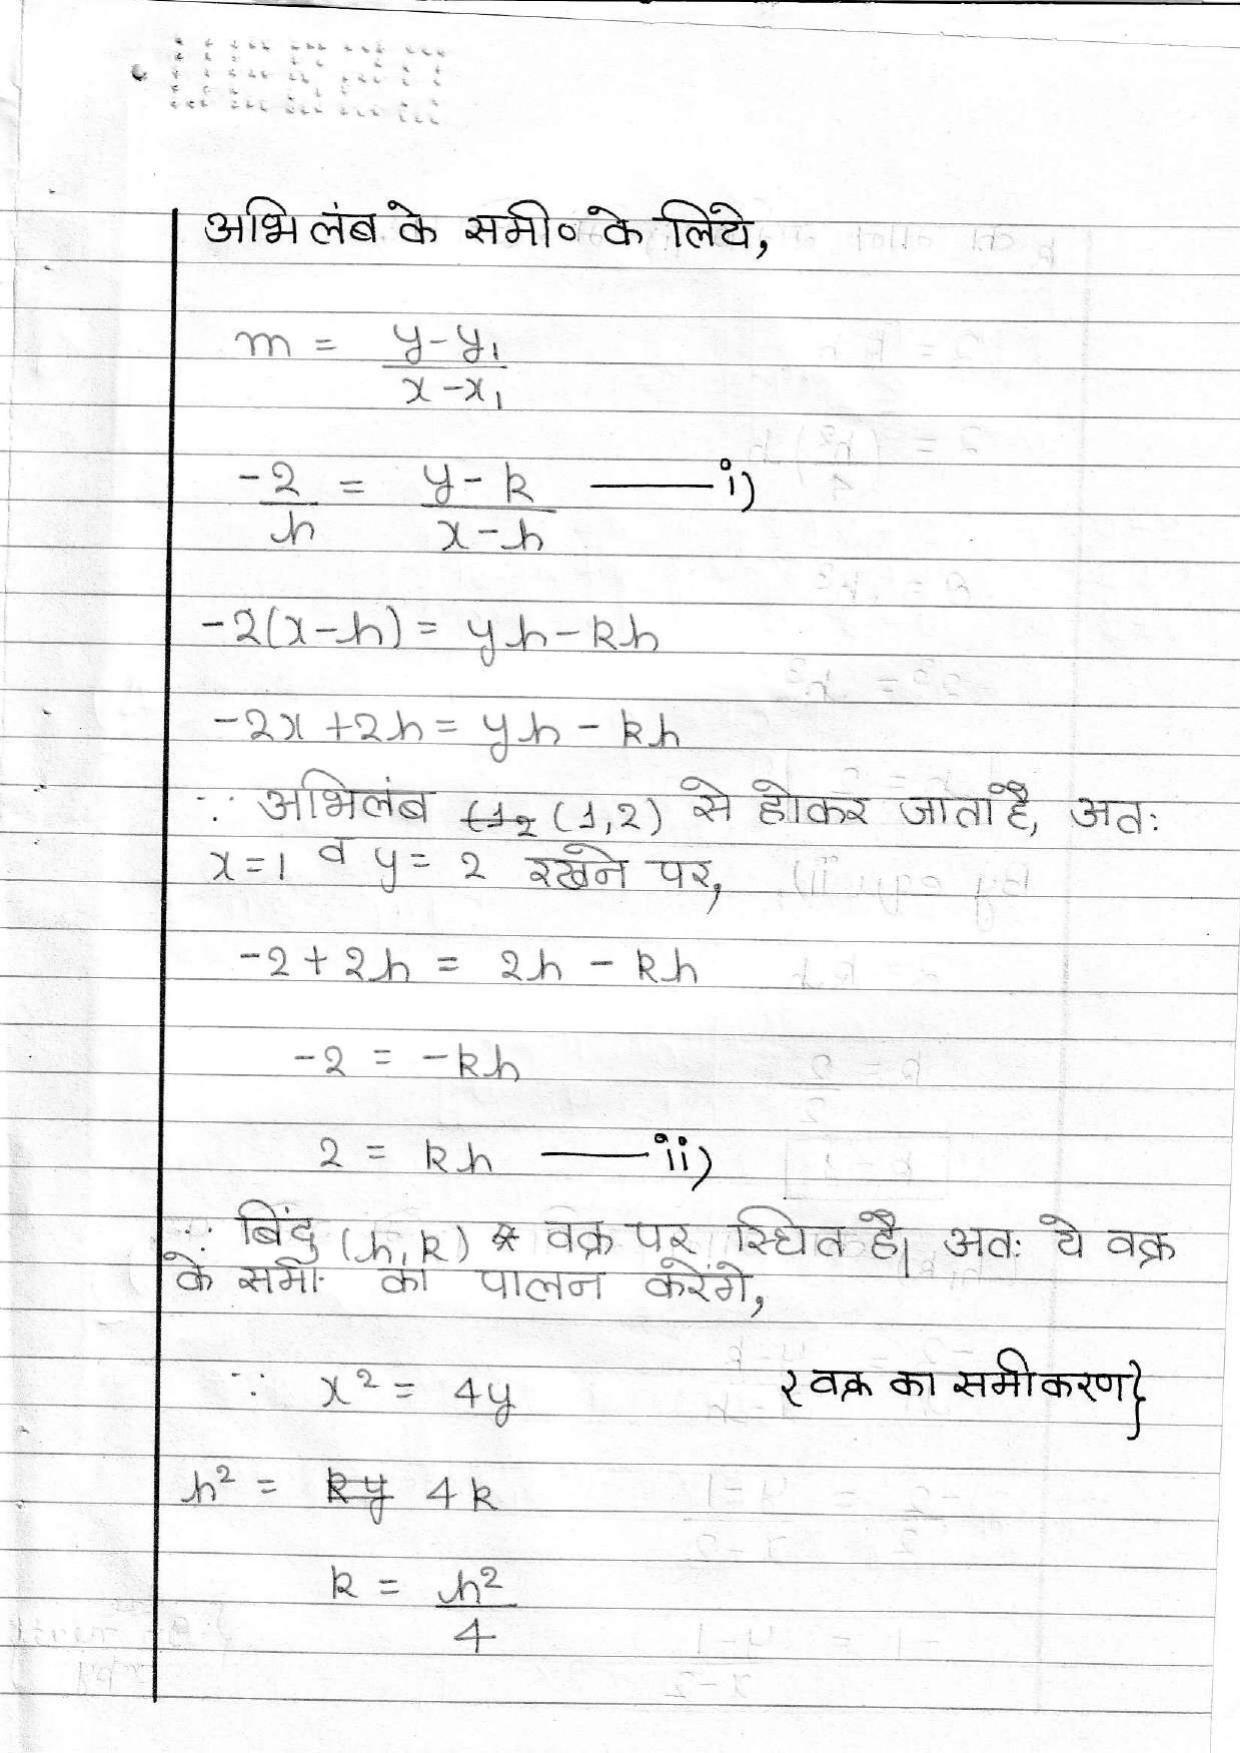 अभिलंब के समी० के लिये,
m = y-y₁
x-x₁
-2 = y-k ——— i)
h x-h
-2(x-h) = yh-kh
-2x+2h = yh-kh
∵ अभिलंब (1,2) से होकर जाता है, अतः
x=1 व y=2 रखने पर,
-2+2h = 2h-kh
-2 = -kh
2 = kh ——— ii)
∵ बिंदु (h,k) वक्र पर स्थित है। अतः ये वक्र
के समी. का पालन करेंगे,
∵ x² = 4y {वक्र का समीकरण}
h² = ky 4k
k = h²
4